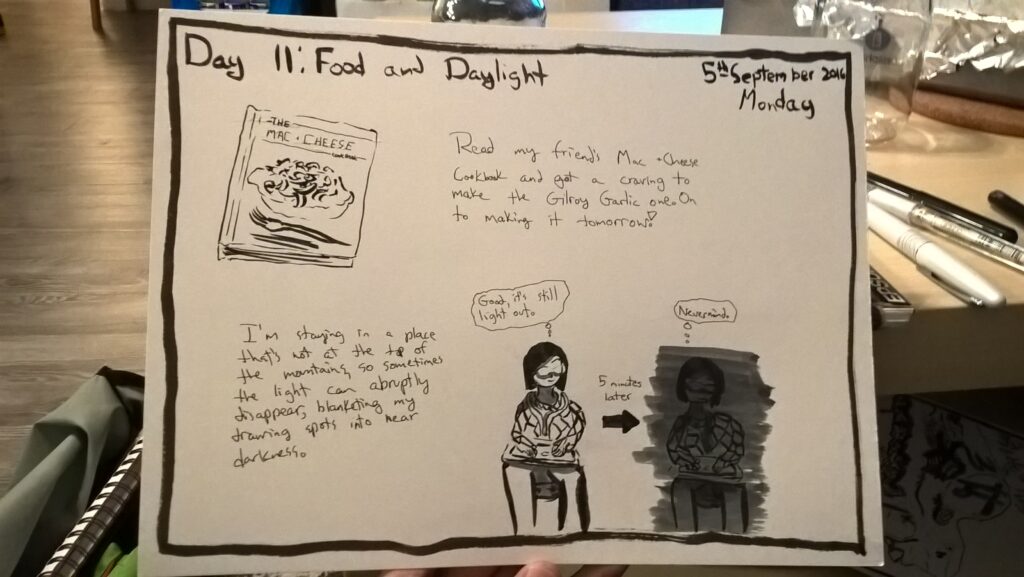 Day 11: Food and Daylight
5th September 2016
Monday
THE
MAC + CHEESE
COOKBOOK
Read my friend's Mac + Cheese
Cookbook and got a craving to
make the Gilroy Garlic one. On
to making it tomorrow!
I'm staying in a place
that's not at the top of
the mountains, so sometimes
the light can abruptly
disappear, blanketing my
drawing spots into near
darkness.
Good, it's still
light out.
5 minutes
later
Nevermind.